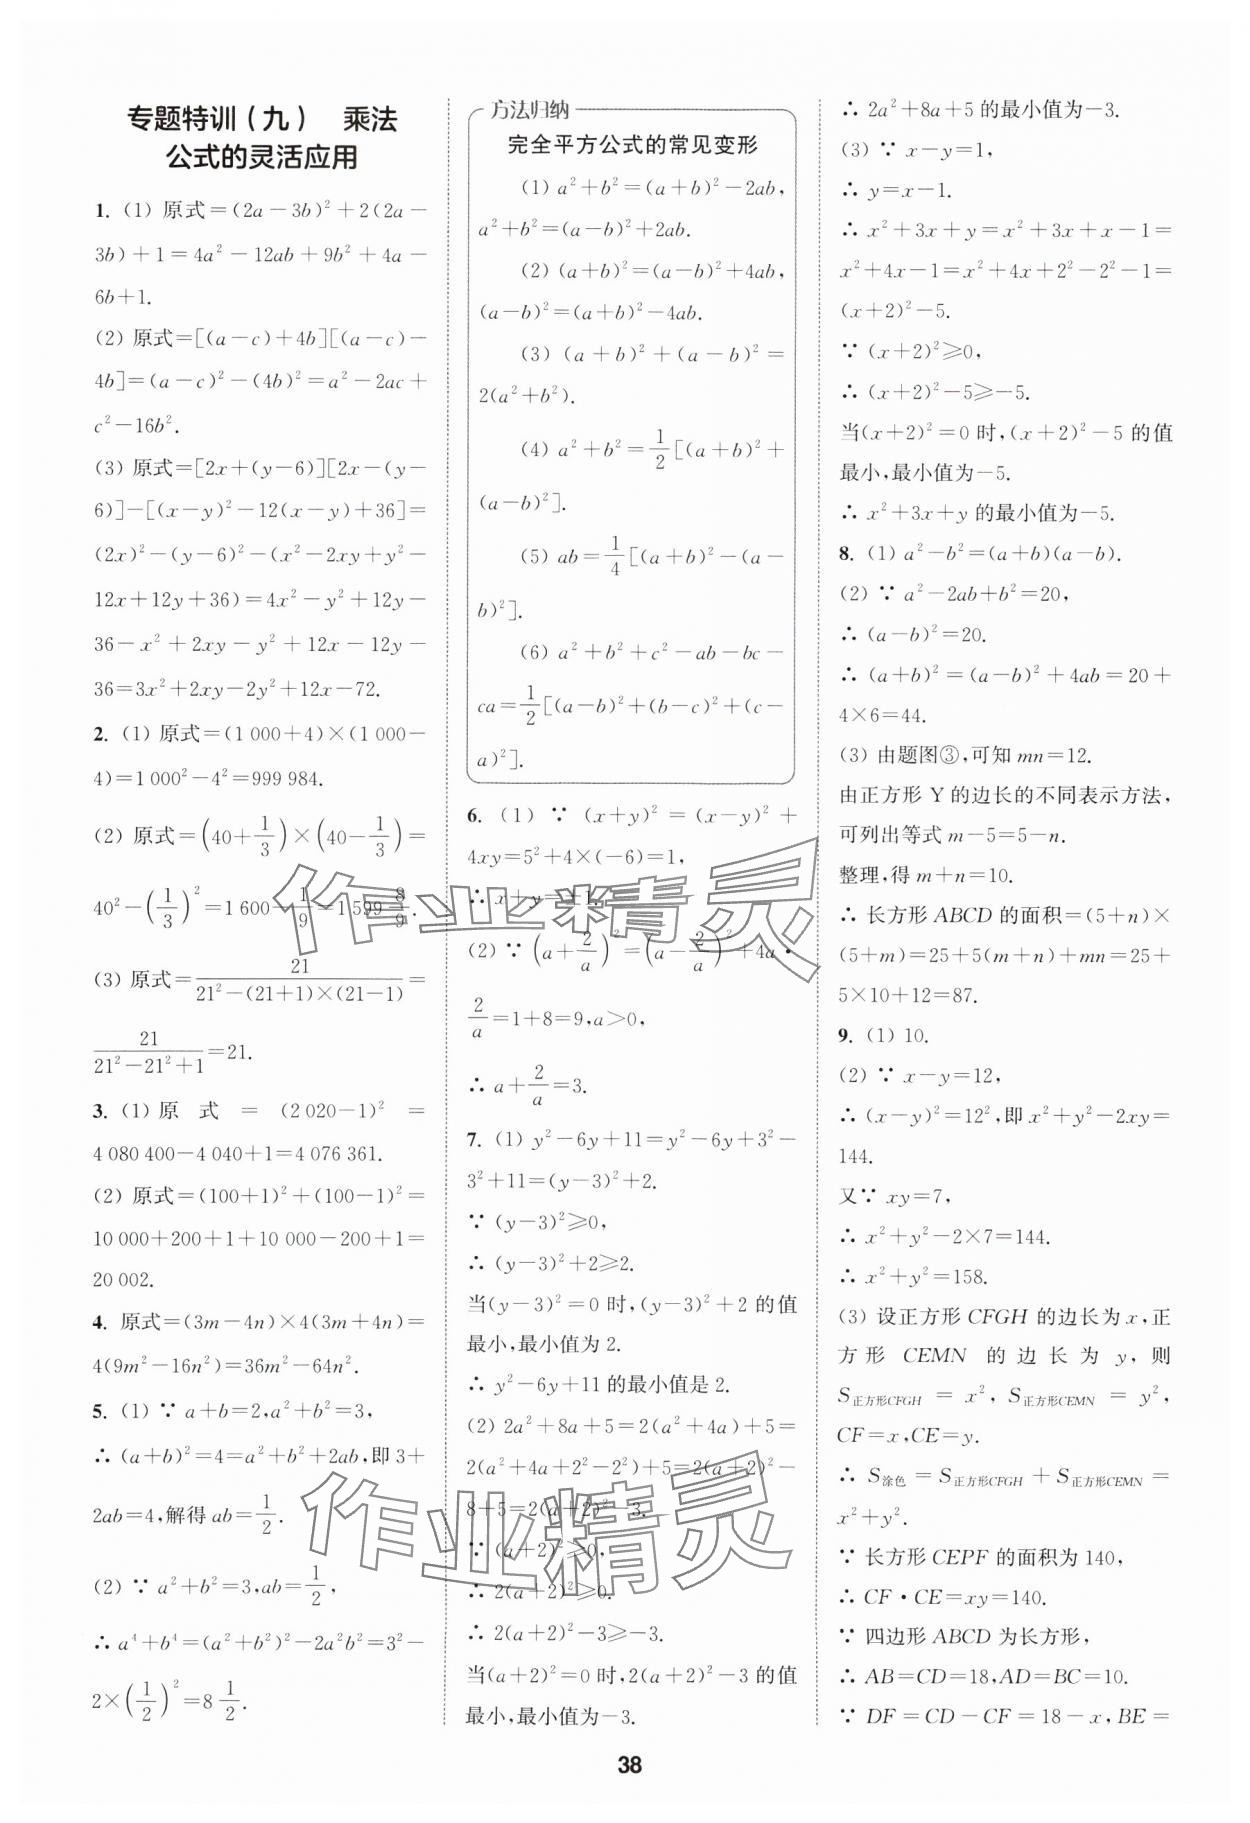 专题特训(九) 乘法
公式的灵活应用
1. (1) 原式=(2a-3b)²+2(2a-
3b)+1=4a²-12ab+9b²+4a-
6b+1.
(2) 原式=[(a-c)+4b][(a-c)-
4b]=(a-c)²-(4b)²=a²-2ac+
c²-16b².
(3) 原式=[2x+(y-6)][2x-(y-
6)]-[(x-y)²-12(x-y)+36]=
(2x)²-(y-6)²-(x²-2xy+y²-
12x+12y+36)=4x²-y²+12y-
36-x²+2xy-y²+12x-12y-
36=3x²+2xy-2y²+12x-72.
2. (1) 原式=(1 000+4)×(1 000-
4)=1 000²-4²=999 984.
(2) 原式=(40+1/3)×(40-1/3)=
40²-(1/3)²=1 600-1/9=1 599 8/9.
(3) 原式=21/(21²-(21+1)×(21-1))=
21/(21²-21²+1)=21.
3. (1) 原式=(2 020-1)²=
4 080 400-4 040+1=4 076 361.
(2) 原式=(100+1)²+(100-1)²=
10 000+200+1+10 000-200+1=
20 002.
4. 原式=(3m-4n)×4(3m+4n)=
4(9m²-16n²)=36m²-64n².
5. (1) ∵ a+b=2,a²+b²=3,
∴ (a+b)²=4=a²+b²+2ab,即 3+
2ab=4,解得 ab=1/2.
(2) ∵ a²+b²=3,ab=1/2,
∴ a⁴+b⁴=(a²+b²)²-2a²b²=3²-
2×(1/2)²=8 1/2.
方法归纳
完全平方公式的常见变形
(1) a²+b²=(a+b)²-2ab,
a²+b²=(a-b)²+2ab.
(2) (a+b)²=(a-b)²+4ab,
(a-b)²=(a+b)²-4ab.
(3) (a+b)²+(a-b)²=
2(a²+b²).
(4) a²+b²=1/2[(a+b)²+
(a-b)²].
(5) ab=1/4[(a+b)²-(a-
b)²].
(6) a²+b²+c²-ab-bc-
ca=1/2[(a-b)²+(b-c)²+(c-
a)²].
6. (1) ∵ (x+y)²=(x-y)²+
4xy=5²+4×(-6)=1,
∴ x+y=±1.
(2) ∵ (a+2/a)²=(a-2/a)²+4a·
2/a=1+8=9,a>0,
∴ a+2/a=3.
7. (1) y²-6y+11=y²-6y+3²-
3²+11=(y-3)²+2.
∵ (y-3)²≥0,
∴ (y-3)²+2≥2.
当(y-3)²=0 时,(y-3)²+2 的值
最小,最小值为 2.
∴ y²-6y+11 的最小值是 2.
(2) 2a²+8a+5=2(a²+4a)+5=
2(a²+4a+2²-2²)+5=2(a+2)²-
8+5=2(a+2)²-3.
∵ (a+2)²≥0,
∴ 2(a+2)²≥0.
∴ 2(a+2)²-3≥-3.
当(a+2)²=0 时,2(a+2)²-3 的值
最小,最小值为-3.
∴ 2a²+8a+5 的最小值为-3.
(3) ∵ x-y=1,
∴ y=x-1.
∴ x²+3x+y=x²+3x+x-1=
x²+4x-1=x²+4x+2²-2²-1=
(x+2)²-5.
∵ (x+2)²≥0,
∴ (x+2)²-5≥-5.
当(x+2)²=0 时,(x+2)²-5 的值
最小,最小值为-5.
∴ x²+3x+y 的最小值为-5.
8. (1) a²-b²=(a+b)(a-b).
(2) ∵ a²-2ab+b²=20,
∴ (a-b)²=20.
∴ (a+b)²=(a-b)²+4ab=20+
4×6=44.
(3) 由题图③,可知 mn=12.
由正方形 Y 的边长的不同表示方法,
可列出等式 m-5=5-n.
整理,得 m+n=10.
∴ 长方形 ABCD 的面积=(5+n)×
(5+m)=25+5(m+n)+mn=25+
5×10+12=87.
9. (1) 10.
(2) ∵ x-y=12,
∴ (x-y)²=12²,即 x²+y²-2xy=
144.
又∵ xy=7,
∴ x²+y²-2×7=144.
∴ x²+y²=158.
(3) 设正方形 CFGH 的边长为 x,正
方形 CEMN 的边长为 y,则
S正方形CFGH=x²,S正方形CEMN=y²,
CF=x,CE=y.
∴ S涂色=S正方形CFGH+S正方形CEMN=
x²+y².
∵ 长方形 CEPF 的面积为 140,
∴ CF·CE=xy=140.
∵ 四边形 ABCD 为长方形,
∴ AB=CD=18,AD=BC=10.
∵ DF=CD-CF=18-x,BE=
38
作业精灵
作业精灵